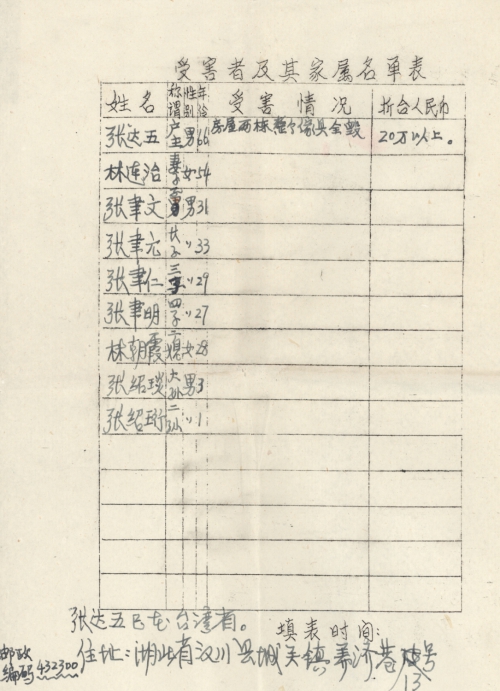 受害者及其家属名单表
姓名 称谓 性别 年龄 受害情况 折合人民币
张达五 户主 男 66 房屋两栋整个傢具全毁 20万以上。
林连治 妻子 女 54
张聿文 男 31
张聿元 长子 〃 33
张聿仁 三子 〃 29
张聿明 四子 〃 27
林朝霞 二媳 女 28
张绍琰 大孙 男 3
张绍珩 二孙 〃 1
张达五已在台湾省。
填表时间:
住址:湖北省汉川县城关镇 济巷 号
13
邮政
编码432300